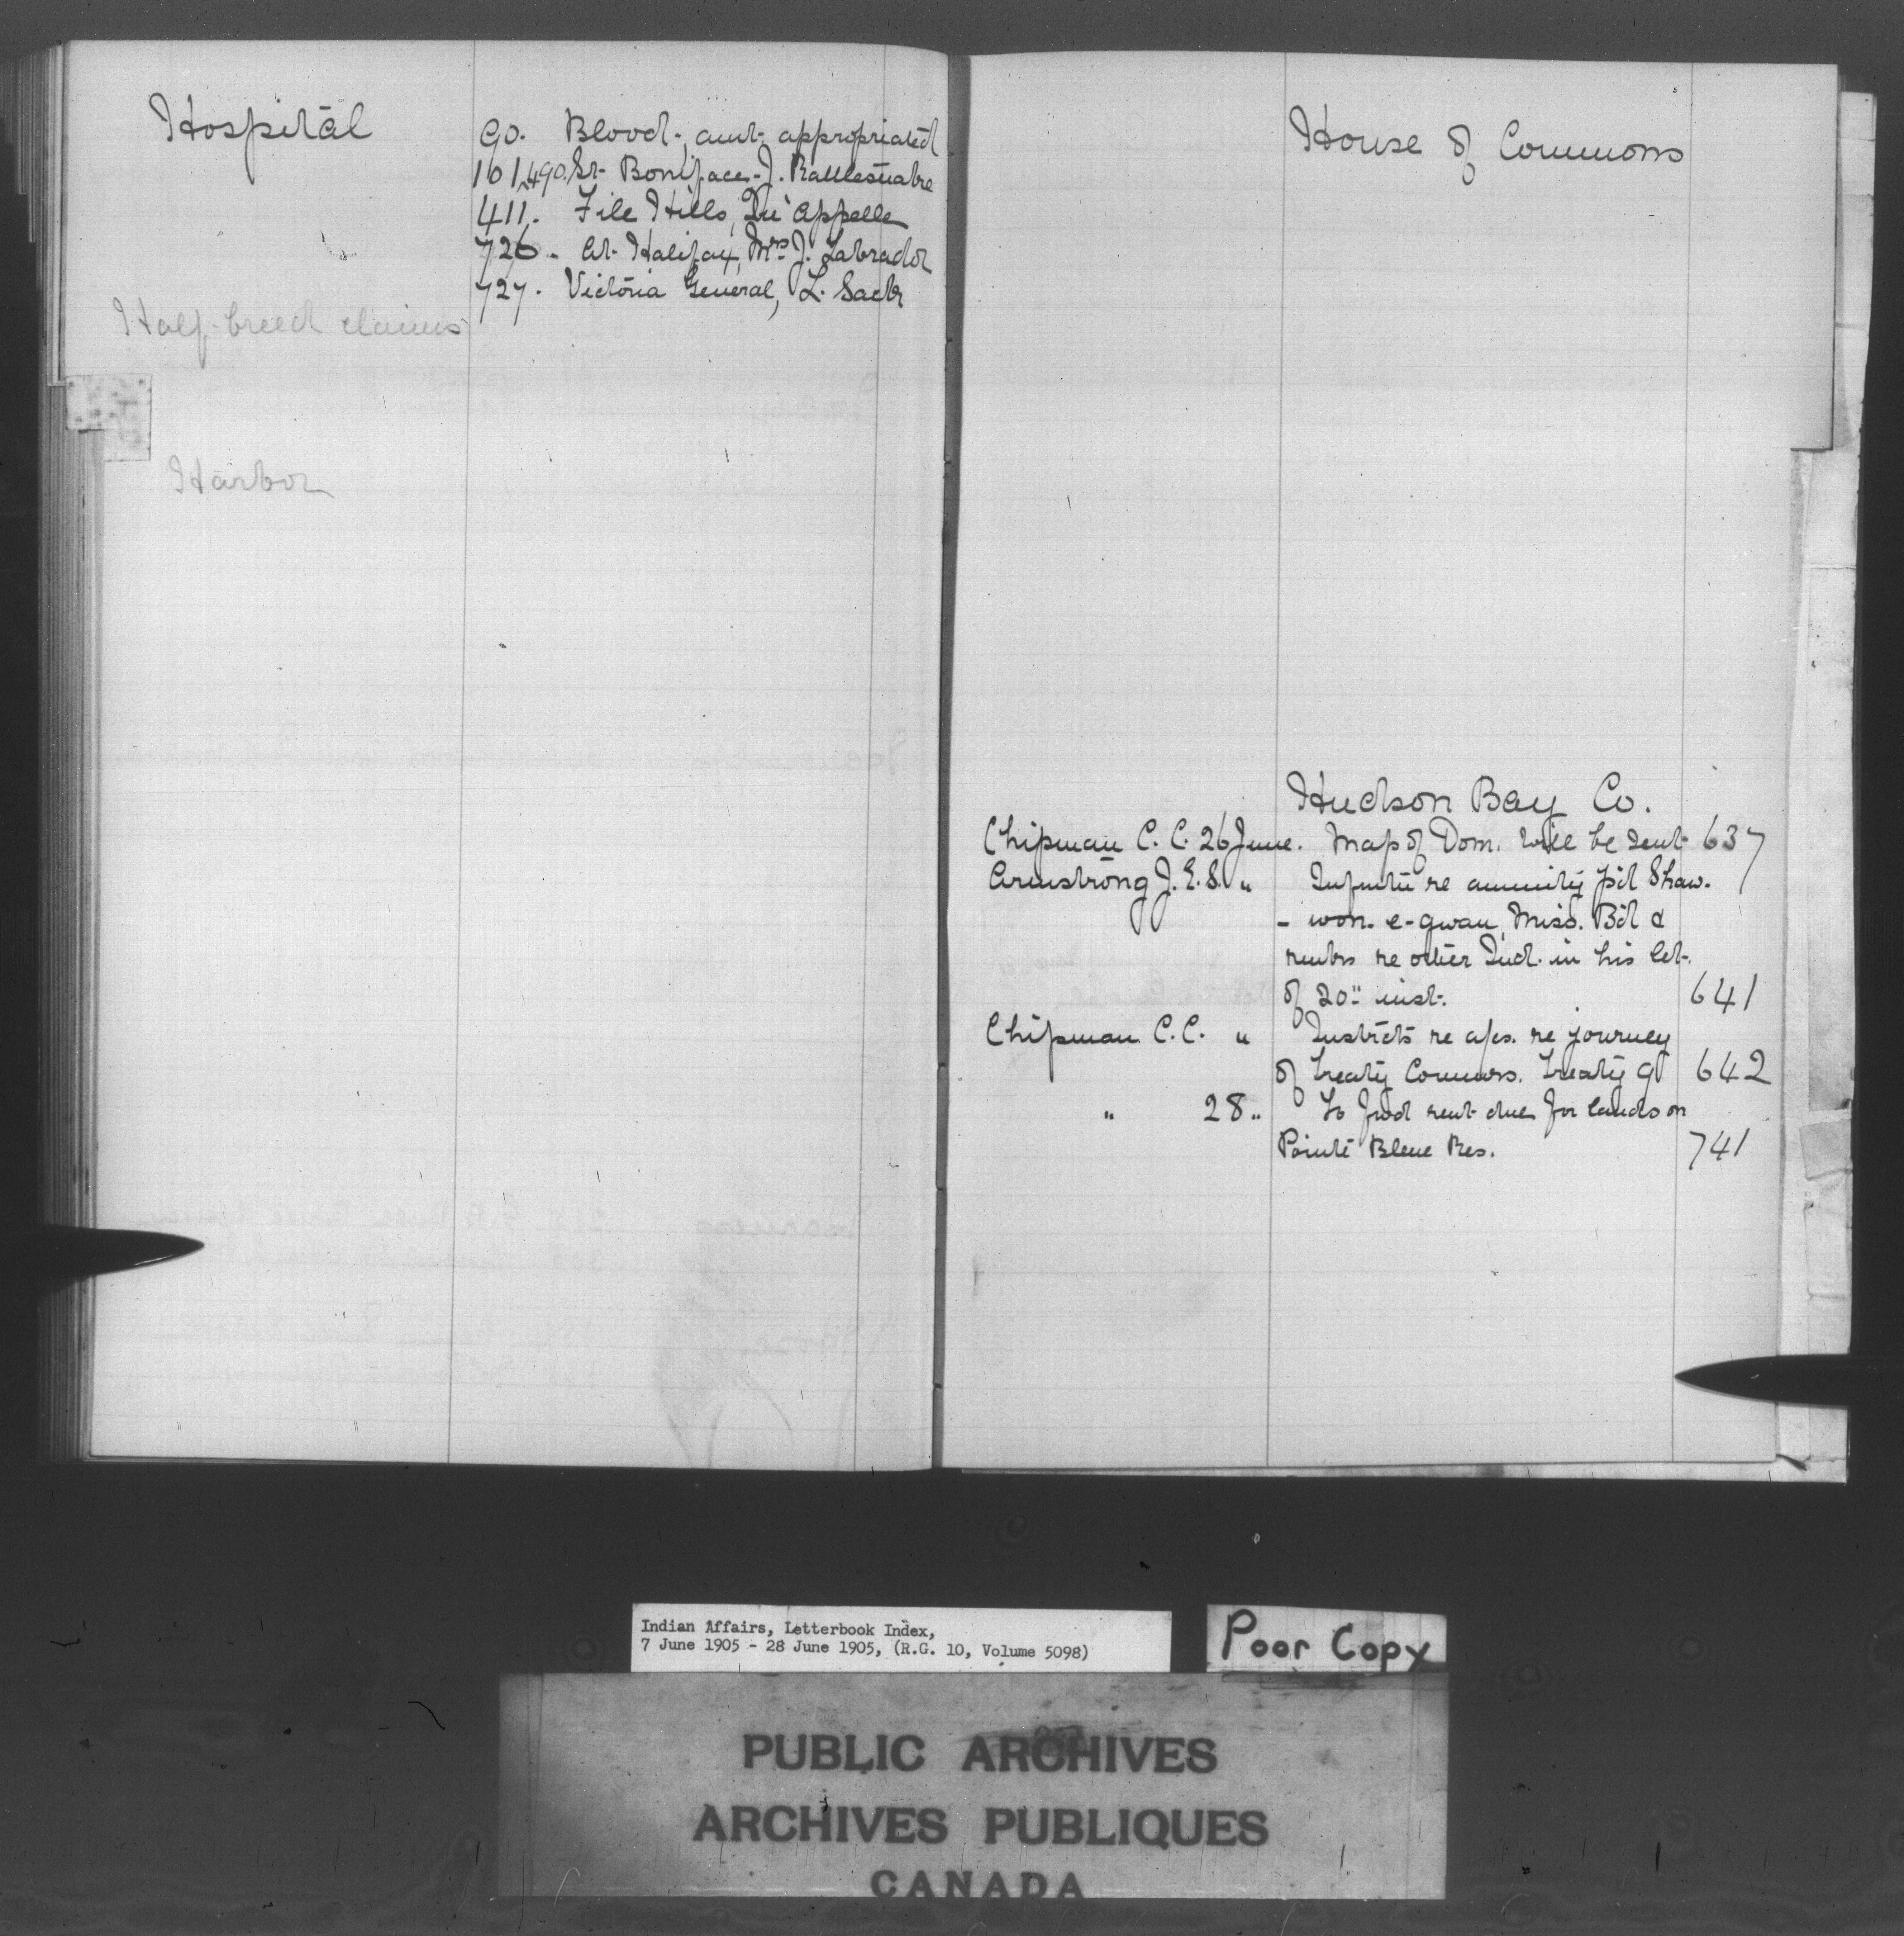 Hospital
90. Blood - amt. appropriated
101, 490. St. Boniface - J. Rattlesnake
411. File Hills, Qu'Appelle
726. At Halifax, Mrs J. Labrador
727. Victoria General, L. Sack
Half-breed claims
Harbor
House of Commons
Hudson Bay Co.
Chipman C. C. 26 June. Map of Dom. will be sent 637
Armstrong J. E. S. " re annuity p'd Shaw.
- won-e-quan, Miss. B'd &
re other Ind. in his let.
of 20" inst. 641
Chipman C. C. " Instrcts re a/cs. re journey
of Treaty Commrs. Treaty 9 642
" 28 " To rent due for lands on
Pointe Bleue Res. 741
Indian Affairs, Letterbook Index,
7 June 1905 - 28 June 1905, (R.G. 10, Volume 5098)
Poor Copy
PUBLIC ARCHIVES
ARCHIVES PUBLIQUES
CANADA